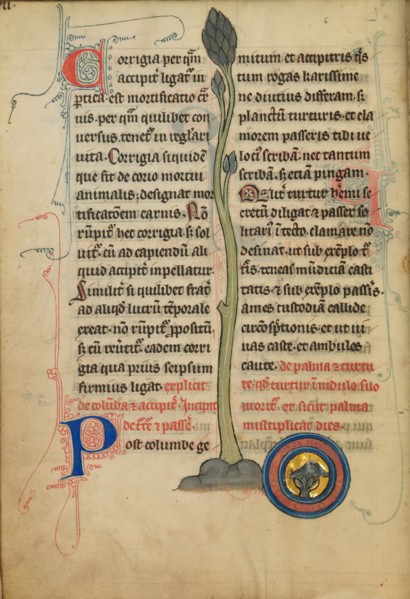 vii.
Corrigia per q̄m
accipit̄ ligat̄ in
ꝑtica. est mortificatio car
nis. per q̄m quilibet con
uersus. tenet̄ in reg̅lari
uita. Corrigia siquidē
que fit de corio mortui
animalis; designat mor
tificatōem carnis. Nō
rūpit̄ hec corrigia; sꝫ sol
uit̄. cū ad capiendū ali
quid accipit̄ impellatur.
Similit̄ si quilibet frat̄
ad aliqd̄ lucrū tēporale
exeat. nō rūpit ꝓpositū
sꝫ cū reūtit̄. eadem corri
gia qua prius seipsum
firmius ligat. explicit
de colūba ⁊ accipit̄. Incipit
de t̄t̄e ⁊ passe᷑.
Post columbe ge
mitum et accipitris q̄s
tum rogas karissime
ne diutius differam. sꝫ
planctū turturis. et cla
morem passeris tibi ue
loci᷑ scribā. nec tantum
scribā. sꝫ ⁊ciā pingam.
turtur hemi se
cretū diligat ⁊ passer so
litari᷑ ī tecto. clamare nō
desinat. ut sub exēplo t᷑
t᷑is. teneas mūdiciā casti
tatis. ⁊ sub exēplo passis.
ames custodiā callide
circōsptionis. et ut ui
uas caste. et ambules
caute. de palma ⁊ turtu
re. qd̄ turtur ī nidulo suo
mort̄. et sicut palma
multiplicabo dies.